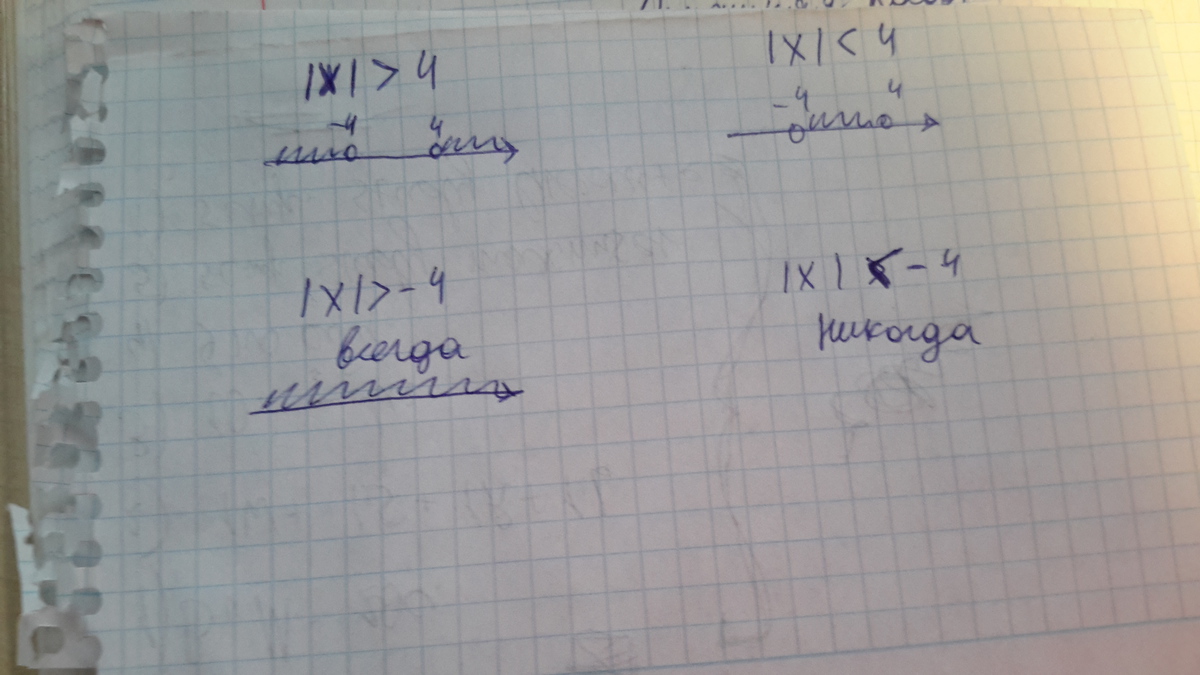 |x| > 4
-4 4
|x| < 4
-4 4
|x| > -4
всегда
|x| < -4
никогда